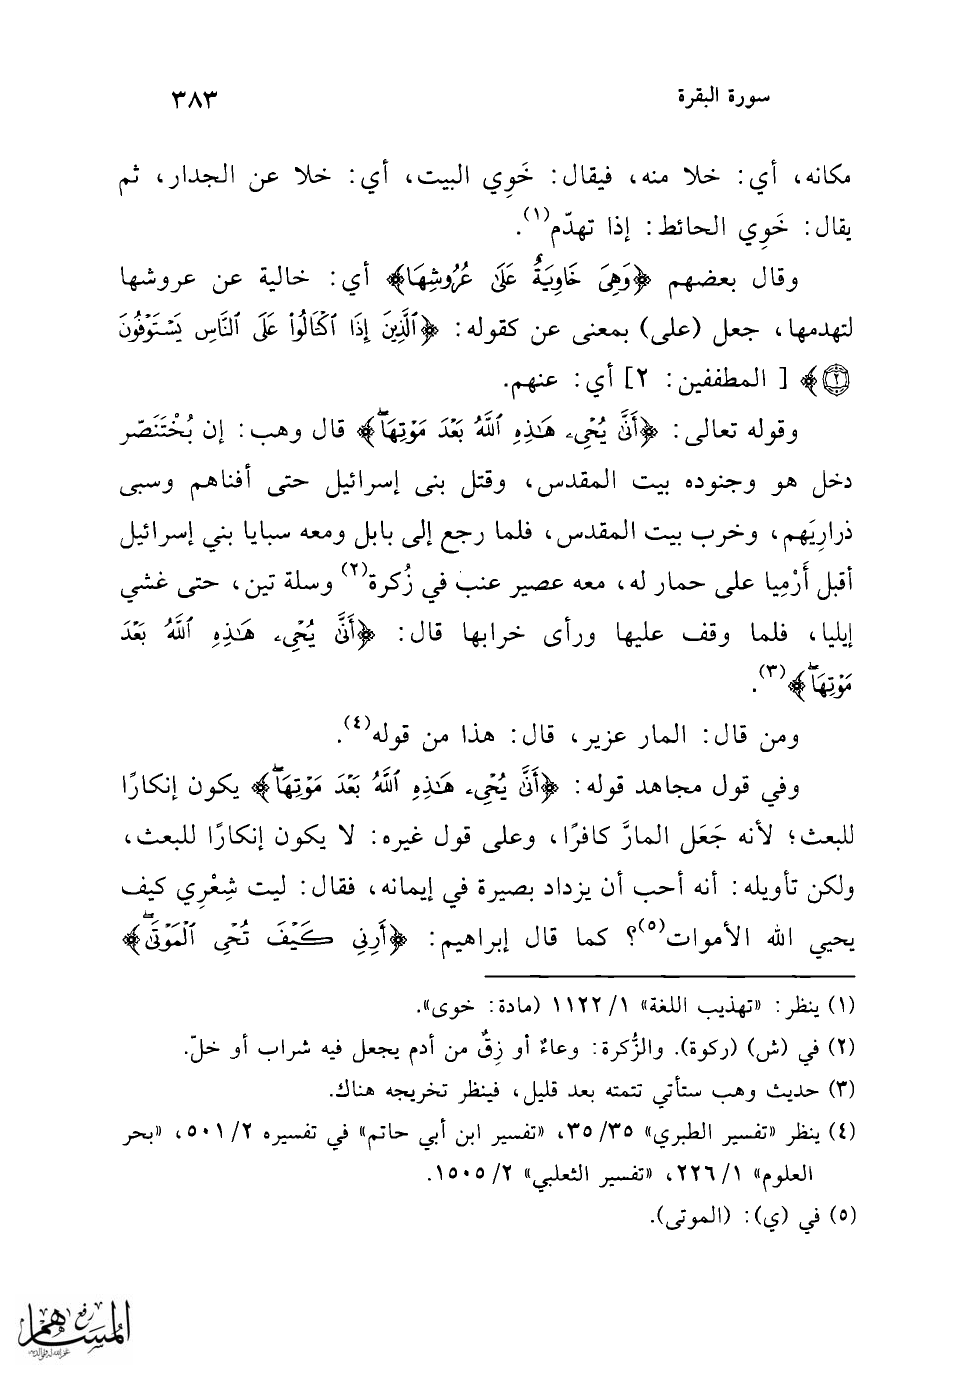 سورة البقرة ٣٨٣
مكانه، أي: خلا منه، فيقال: خَوِي البيت، أي: خلا عن الجدار، ثم
يقال: خَوِي الحائط: إذا تهدّم(١).
وقال بعضهم ﴿وَهِيَ خَاوِيَةٌ عَلَىٰ عُرُوشِهَا﴾ أي: خالية عن عروشها
لتهدمها، جعل (على) بمعنى عن كقوله: ﴿ٱلَّذِينَ إِذَا ٱكْتَالُوا۟ عَلَى ٱلنَّاسِ يَسْتَوْفُونَ
۝٢﴾ [ المطففين: ٢] أي: عنهم.
وقوله تعالى: ﴿أَنَّىٰ يُحْىِۦ هَـٰذِهِ ٱللَّهُ بَعْدَ مَوْتِهَاۖ﴾ قال وهب: إن بُخْتَنَصّر
دخل هو وجنوده بيت المقدس، وقتل بنى إسرائيل حتى أفناهم وسبى
ذرارِيَهم، وخرب بيت المقدس، فلما رجع إلى بابل ومعه سبايا بني إسرائيل
أقبل أَرْمِيا على حمار له، معه عصير عنب في زُكرة(٢) وسلة تين، حتى غشي
إيليا، فلما وقف عليها ورأى خرابها قال: ﴿أَنَّىٰ يُحْىِۦ هَـٰذِهِ ٱللَّهُ بَعْدَ
مَوْتِهَاۖ﴾(٣).
ومن قال: المار عزير، قال: هذا من قوله(٤).
وفي قول مجاهد قوله: ﴿أَنَّىٰ يُحْىِۦ هَـٰذِهِ ٱللَّهُ بَعْدَ مَوْتِهَاۖ﴾ يكون إنكارًا
للبعث؛ لأنه جَعَل المارَّ كافرًا، وعلى قول غيره: لا يكون إنكارًا للبعث،
ولكن تأويله: أنه أحب أن يزداد بصيرة في إيمانه، فقال: ليت شِعْرِي كيف
يحيي الله الأموات(٥)؟ كما قال إبراهيم: ﴿أَرِنِى كَيْفَ تُحْىِ ٱلْمَوْتَىٰۖ﴾
(١) ينظر: «تهذيب اللغة» ١/ ١١٢٢ (مادة: خوى».
(٢) في (ش) (ركوة). والزُّكرة: وعاءٌ أو زِقٌ من أدم يجعل فيه شراب أو خلّ.
(٣) حديث وهب ستأتي تتمته بعد قليل، فينظر تخريجه هناك.
(٤) ينظر «تفسير الطبري» ٣٥/ ٣٥، «تفسير ابن أبي حاتم» في تفسيره ٢/ ٥٠١، «بحر
العلوم» ١/ ٢٢٦، «تفسير الثعلبي» ٢/ ١٥٠٥.
(٥) في (ي): (الموتى).
رفع
المساهم